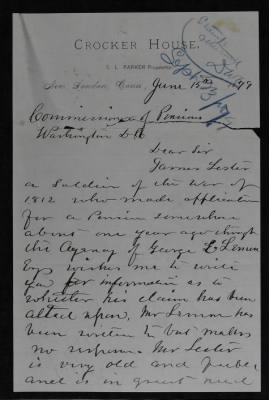 CROCKER HOUSE.
C. L. PARKER Proprietor
New London, Conn, June 15th 1879
Commissioner of Pensions
Washington D C
Dear Sir
James Lester
a Soldier of the War of
1812 who made application
for a Pension somewhere
about one year ago through
the Agency of George E Lemon
Esqr wishes me to write
you for information as to
whether his claim has been
acted upon, Mr Lemon has
been written to but makes
no response. Mr Lester
is very old and feeble
and is in great need